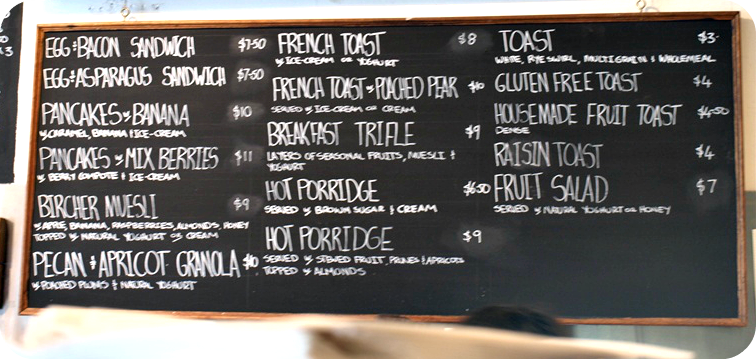 EGG & BACON SANDWICH $7.50
EGG & ASPARAGUS SANDWICH $7.50
PANCAKES w BANANA $10
w CARAMEL, BANANA & ICE-CREAM
PANCAKES w MIX BERRIES $11
w BERRY COMPOTE & ICE-CREAM
BIRCHER MUESLI $9
w APPLE, BANANA, RASPBERRIES, ALMONDS, HONEY
TOPPED w NATURAL YOGHURT OR CREAM
PECAN & APRICOT GRANOLA $10
w POACHED PLUMS & NATURAL YOGHURT
FRENCH TOAST $8
w ICE-CREAM OR YOGHURT
FRENCH TOAST w POACHED PEAR $10
SERVED w ICE-CREAM OR CREAM
BREAKFAST TRIFLE $9
LAYERS OF SEASONAL FRUITS, MUESLI &
YOGHURT
HOT PORRIDGE $6.50
SERVED w BROWN SUGAR & CREAM
HOT PORRIDGE $9
SERVED w STEWED FRUIT, PRUNES & APRICOTS
TOPPED w ALMONDS
TOAST $3.
WHITE, RYE SWIRL, MULTIGRAIN & WHOLEMEAL
GLUTEN FREE TOAST $4
HOUSEMADE FRUIT TOAST $4.50
DENSE
RAISIN TOAST $4
FRUIT SALAD $7
SERVED w NATURAL YOGHURT OR HONEY